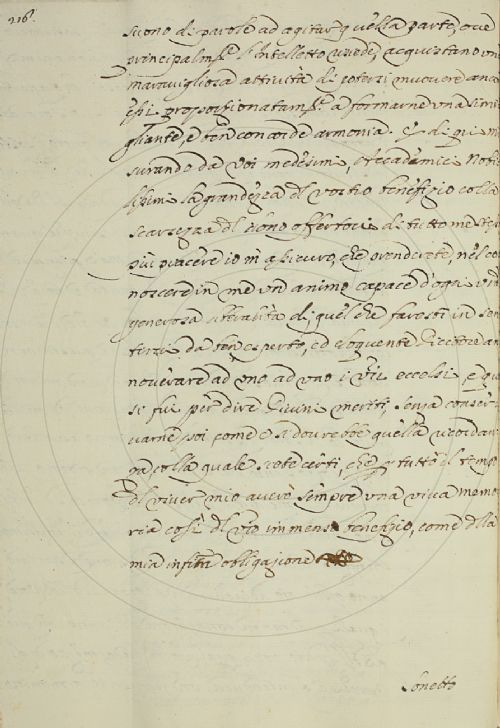 216.
suono di parole ad agitar quella parte, ove
principalmte l'Intelletto risiede, acquistano una
maravigliosa attività di potersi muovere anch'
essi proporzionatamte a formarne una simi
gliante, e ben concorde armonia. E di qui mi
surando da voi medesimi, Accademici Nobi
lissimi la grandezza del vostro benefizio colla
scarsezza del dono offertovi di tutto me stesso
più piacere io m'assicuro, che prenderete, nel co
noscere in me un animo capace d'ogni vra
generosa liberalità di quel che fareste in sen
tirvi da ben esperto, ed eloquente Dicitore an
noverare ad uno ad uno i vri eccelsi, e qua
si fui per dire Divini meriti, senza conser
varne poi come si dovrebbe quella ricordan
za colla quale siate certi, che p tutto il tempo
del viver mio averò sempre una viva memo
ria così del vro immenso benefizio, come della
mia infita obligazione
Sonetto